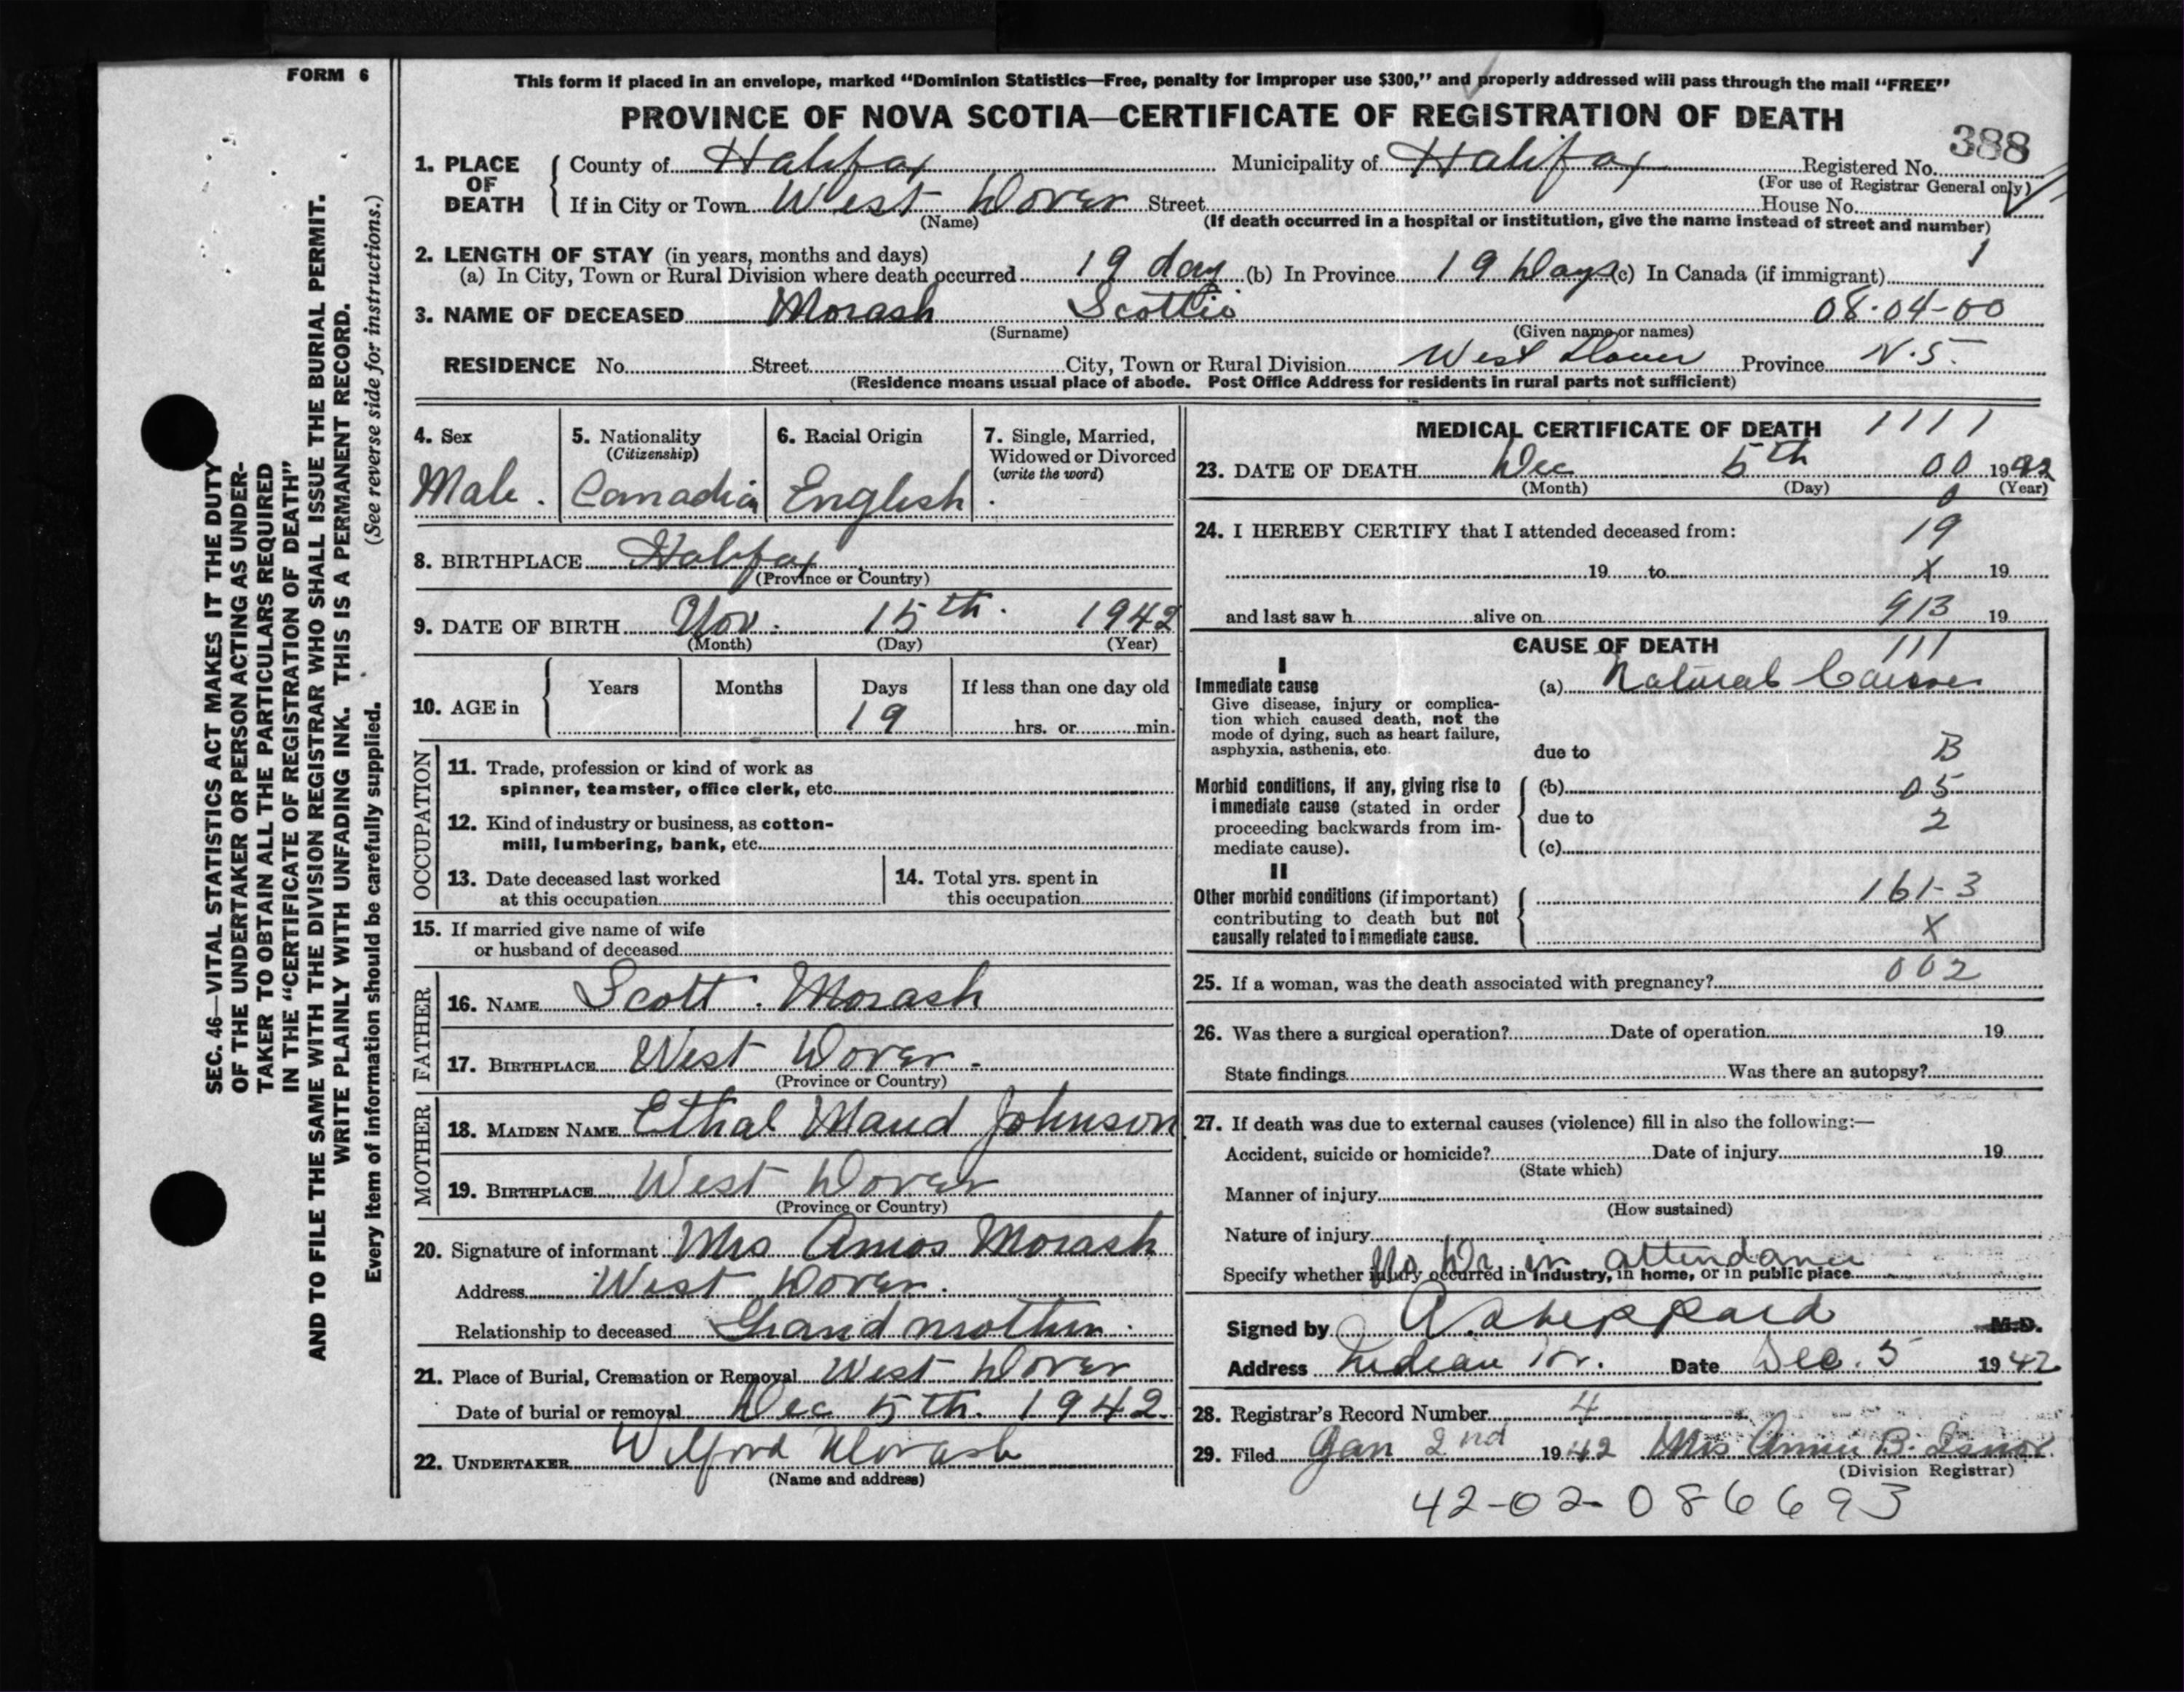 FORM 6
This form if placed in an envelope, marked “Dominion Statistics—Free, penalty for improper use $300,” and properly addressed will pass through the mail “FREE”
PROVINCE OF NOVA SCOTIA—CERTIFICATE OF REGISTRATION OF DEATH
388
1. PLACE OF DEATH County of Halifax Municipality of Halifax Registered No.
(For use of Registrar General only)
If in City or Town West Dover Street House No.
(Name) (If death occurred in a hospital or institution, give the name instead of street and number)
2. LENGTH OF STAY (in years, months and days) 1
(a) In City, Town or Rural Division where death occurred 19 day (b) In Province 19 Days (c) In Canada (if immigrant)
3. NAME OF DECEASED Morash Scottie 08-04-00
(Surname) (Given name or names)
RESIDENCE No. Street City, Town or Rural Division West Dover Province N.S.
(Residence means usual place of abode. Post Office Address for residents in rural parts not sufficient)
4. Sex
Male.
5. Nationality
(Citizenship)
Canadian
6. Racial Origin
English
7. Single, Married,
Widowed or Divorced
(write the word)
8. BIRTHPLACE Halifax
(Province or Country)
9. DATE OF BIRTH Nov. 15th. 1942
(Month) (Day) (Year)
10. AGE in Years Months Days If less than one day old
19 hrs. or min.
OCCUPATION
11. Trade, profession or kind of work as
spinner, teamster, office clerk, etc.
12. Kind of industry or business, as cotton-
mill, lumbering, bank, etc.
13. Date deceased last worked
at this occupation
14. Total yrs. spent in
this occupation
15. If married give name of wife
or husband of deceased
FATHER
16. NAME Scott. Morash
17. BIRTHPLACE West Dover.
(Province or Country)
MOTHER
18. MAIDEN NAME Ethal Maud Johnson
19. BIRTHPLACE West Dover
(Province or Country)
20. Signature of informant Mrs Amos Morash
Address West Dover.
Relationship to deceased Grandmother.
21. Place of Burial, Cremation or Removal West Dover
Date of burial or removal Dec 5th. 1942
22. UNDERTAKER Wilford Morash
(Name and address)
MEDICAL CERTIFICATE OF DEATH 1111
23. DATE OF DEATH Dec 5th 00 1942
(Month) (Day) 0 (Year)
24. I HEREBY CERTIFY that I attended deceased from: 19
19 to X 19
and last saw h alive on 913 19
CAUSE OF DEATH 111
I
Immediate cause
Give disease, injury or complica-
tion which caused death, not the
mode of dying, such as heart failure,
asphyxia, asthenia, etc.
(a) Natural Causes
due to B
Morbid conditions, if any, giving rise to
immediate cause (stated in order
proceeding backwards from im-
mediate cause).
(b) 05
due to 2
(c)
II
Other morbid conditions (if important)
contributing to death but not
causally related to immediate cause.
161-3
X
25. If a woman, was the death associated with pregnancy? 002
26. Was there a surgical operation? Date of operation 19
State findings Was there an autopsy?
27. If death was due to external causes (violence) fill in also the following:—
Accident, suicide or homicide? Date of injury 19
(State which)
Manner of injury
(How sustained)
Nature of injury
No Dr in attendance
Specify whether injury occurred in industry, in home, or in public place
Signed by A. Sheppard M.D.
Address Indian Hr. Date Dec. 5 1942
28. Registrar's Record Number 4
29. Filed Jan 2nd 1942 Mrs B.
(Division Registrar)
42-02-086693
SEC. 46—VITAL STATISTICS ACT MAKES IT THE DUTY
OF THE UNDERTAKER OR PERSON ACTING AS UNDER-
TAKER TO OBTAIN ALL THE PARTICULARS REQUIRED
IN THE “CERTIFICATE OF REGISTRATION OF DEATH”
AND TO FILE THE SAME WITH THE DIVISION REGISTRAR WHO SHALL ISSUE THE BURIAL PERMIT.
WRITE PLAINLY WITH UNFADING INK. THIS IS A PERMANENT RECORD.
Every item of information should be carefully supplied. (See reverse side for instructions.)